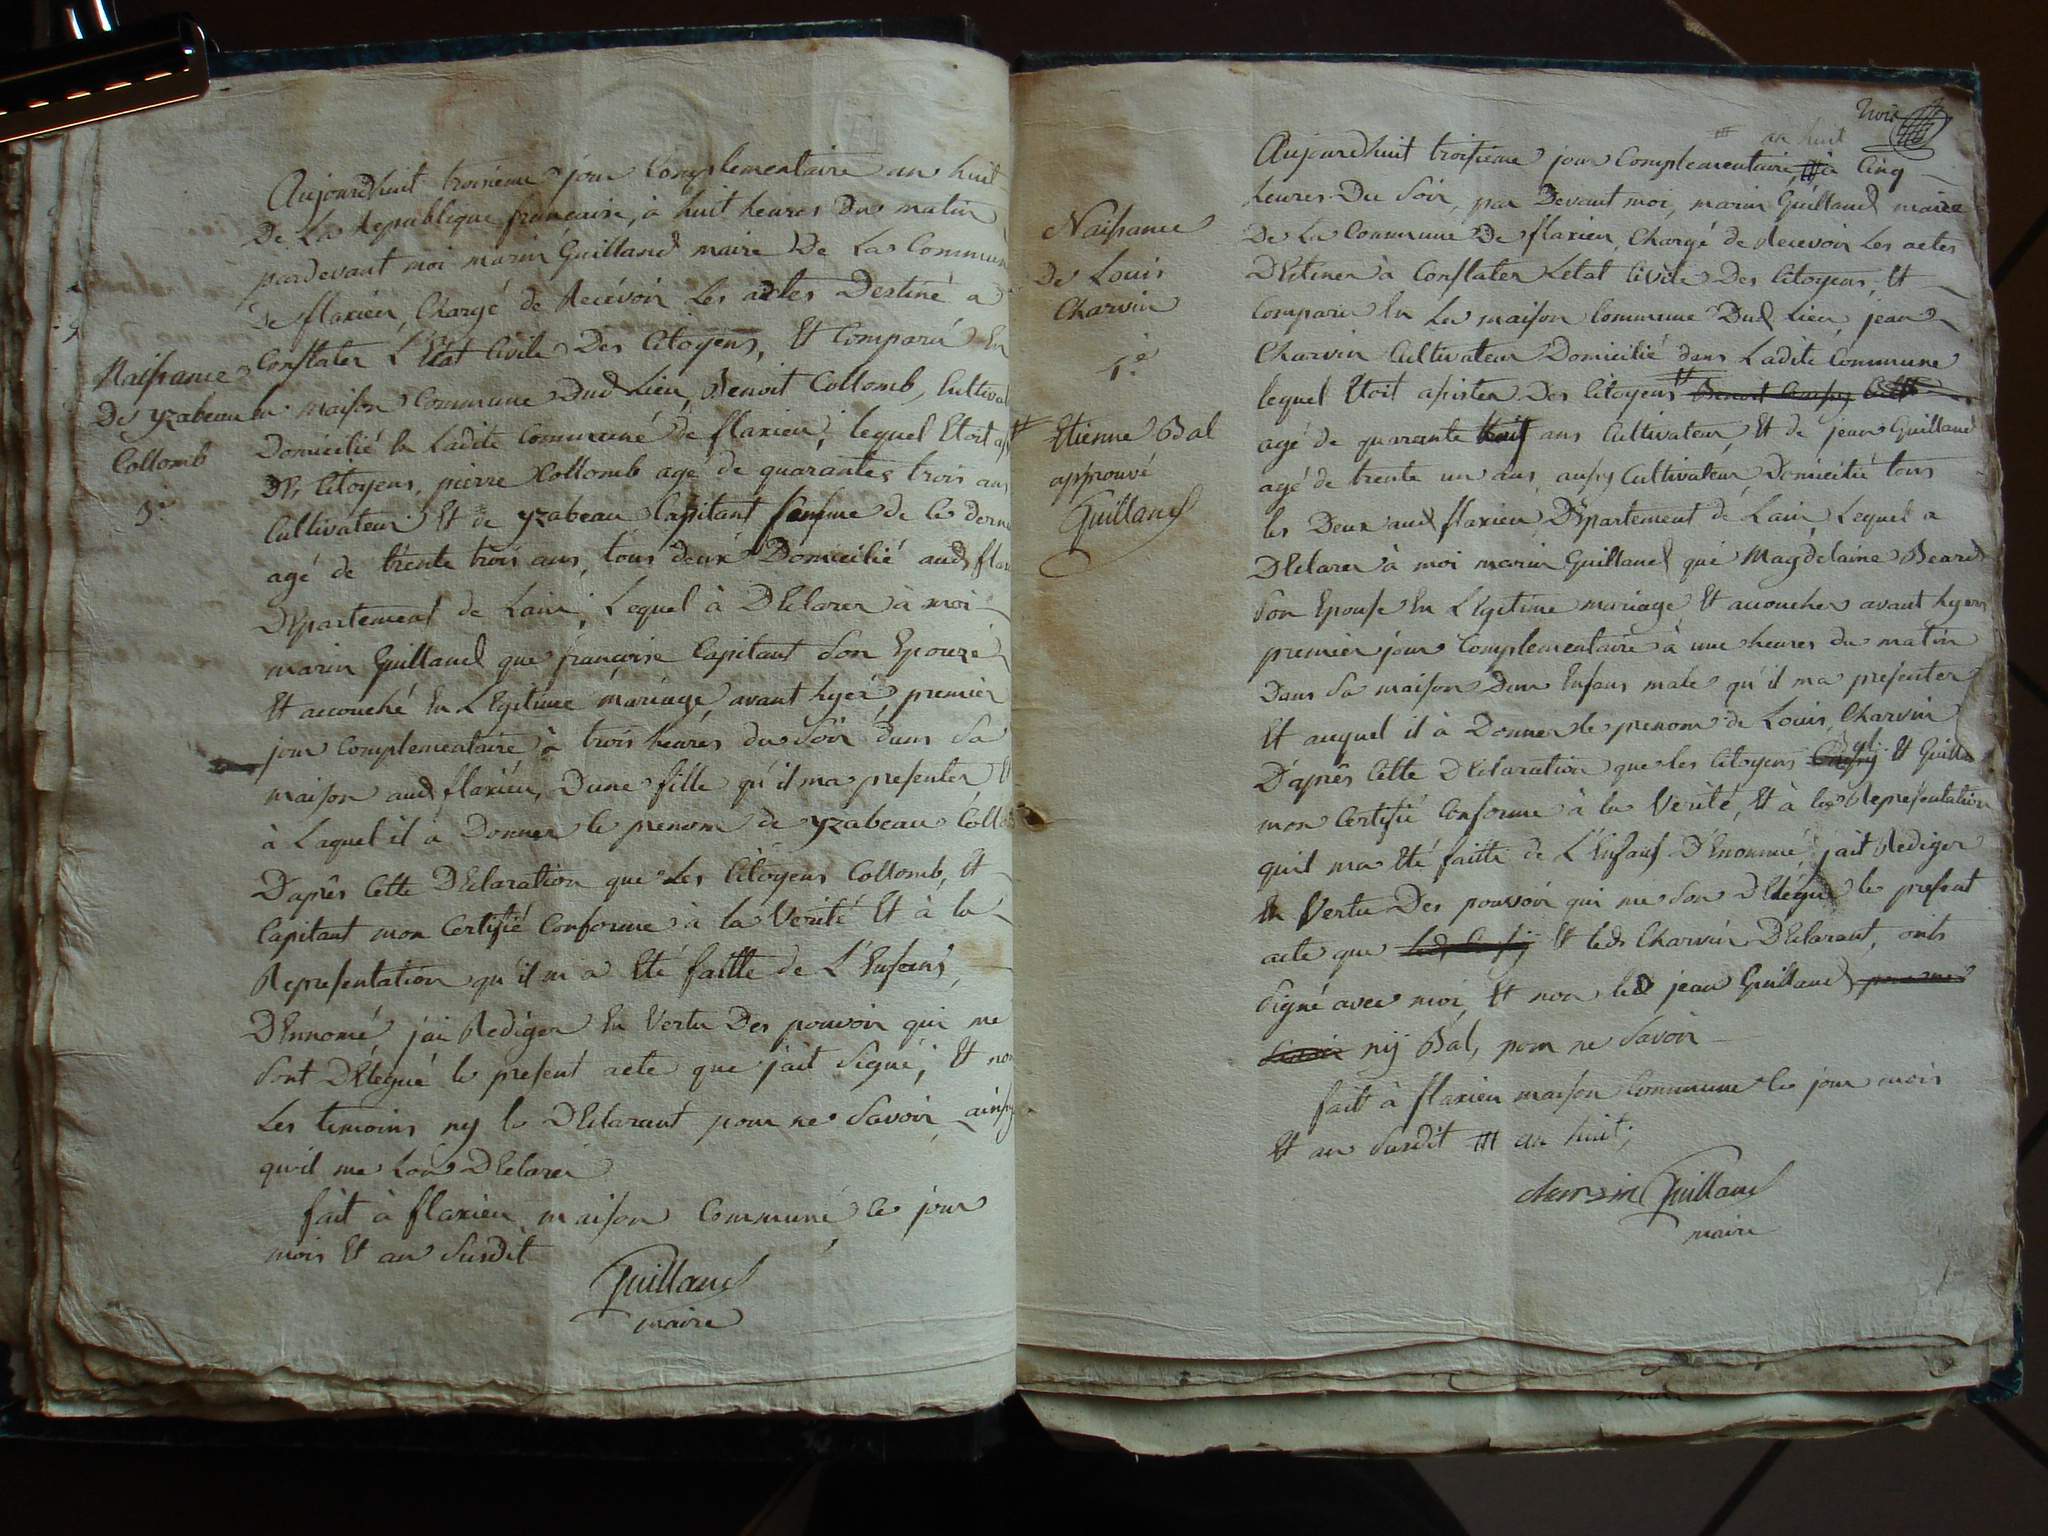 Aujourdhuit troisieme jour Complementaire an huit
De La Republique francaise, à huit heures Du matin
pardevant moi marin Guilland maire De La Commun
De flaxieu, Chargé de Recevoir Les actes Destiné a
Constater L'Etat Civile Des Citoyens, Et Comparu En
la maison Commune Dud Lieu, Benoit Collomb, Cultivat
Domicilié En Ladite Communé de flaxieu, lequel Etoit
Des Citoyens, pierre Collomb agé de quarantes trois ans
Cultivateur Et de yzabeau Capitant femme de Ce
agé de trente trois ans, tous deux Domicilié aud flax
Département de Lain, Lequel à DEclarer à moi
marin Guilland que françoise Capitant Son Epouze
Et accouché En LEgitime mariage, avant hyér, premier
jour Complementaire à trois heures du Soir dans Sa
maison aud flaxieu, Dune fille qu'il ma presenter, Et
à Laquel il à Donner le prenom de yzabeau Collo
Daprês Cette DEclaration que Les Citoyens Collomb, Et
Capitant mon Certifié Conforme à la Verité Et à la
Representation qu'il m'a Eté faitte de L'Enfant,
DEnnomé, jai Rediger En Vertu Des pouvoir qui me
Sont DElegué le present acte que jait Signé, Et non
Les temoins ny le DEclarant pour ne Savoir, ainsy
qu'il me Lon DEclarer
fait à flaxieu maison Communé Ce jour
mois Et an Susdit
Guilland
maire
Naissance
De yzabeau
Collomb
3.e
trois
an huit
Aujourdhuit troisieme jour Complementaire, Cinq
heures Du Soir, par Devant moi, marin Guilland maire
De La Commune De flaxieu, Chargé de Recevoir Les actes
DEtiner à Constater Letat Civile Des Citoyens, Et
Comparu En La maison Commune Dud Lieu, jean
Charvin Cultivateur Domicilié dans Ladite Commune
lequel Etoit assister Des Citoyens
agé de quarante huit ans Cultivateur Et de jean Guilland
agé de trente un ans, aussy Cultivateur Domicilié tous
les Deux aud flaxieu, Département de Lain Lequel a
DEclarer à moi marin Guilland que Magdelaine Beard
Son Epouse En LEgitime mariage Et accoucher avant hyer
premier jour Complementaire à une heures du matin
Dans Sa maison Dun Enfans male qu'il ma presenter
Et auquel il à Donner le prenom de Louis Charvin
Daprês Cette DEclaration que les Citoyens Bal Et Guilla
mon Certifié Conforme à la Verité, Et à la Representation
quil ma Eté faitte de L'Enfant DEnommé, jait Rediger
En Vertu Des pouvoir qui me Son DElégué le present
acte que Et leds Charvin DEclarant, onts
Signé avec moi, Et non led jean Guilland
nij Bal, pour ne Savoir
fait à flaxieu maison Commune Ce jour mois
Et an Susdit an huit,
charvin Guilland
maire
Naissance
De Louis
Charvin
1.e
Etienne Bal
approuvé
Guilland